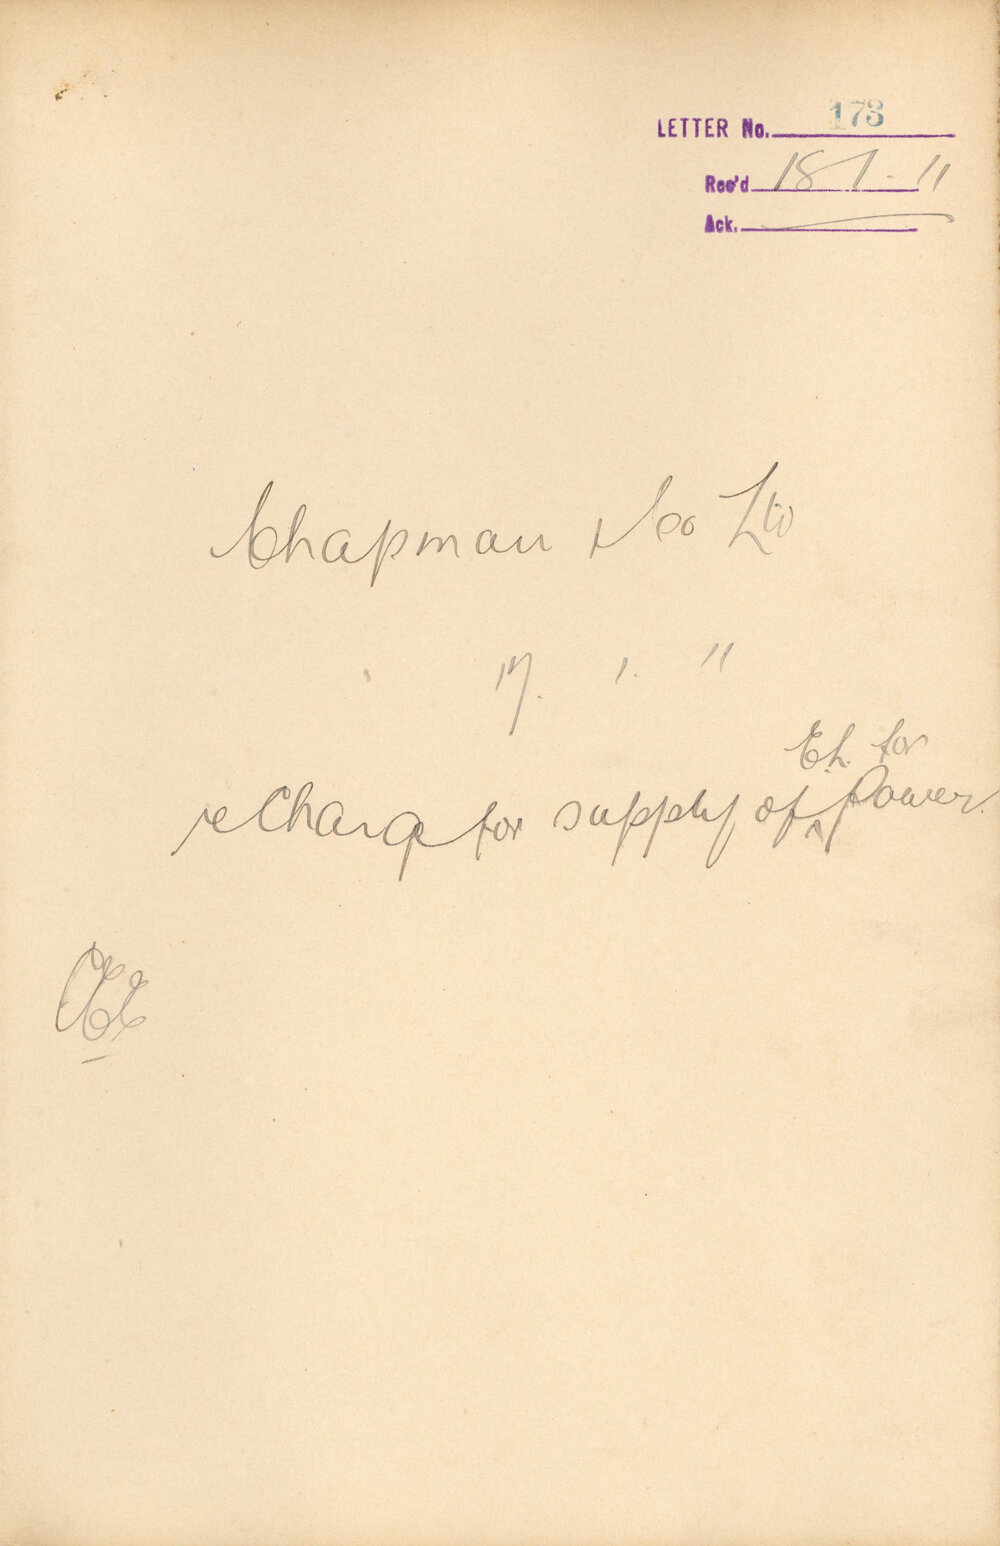 LETTER No. 173
Rec'd 18 1 . 11
Ack.
Chapman & Co Ltd
17. 1. 11
E.L. for
re Charge for supply of ^ Power.